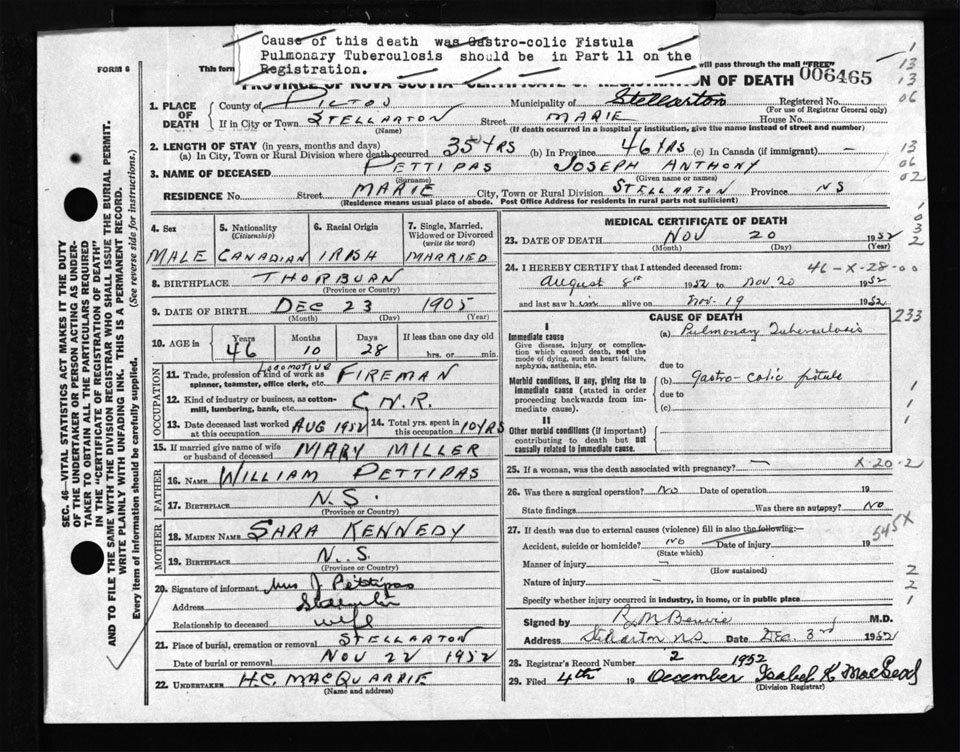 Cause of this death was Gastro-colic Fistula
Pulmonary Tuberculosis should be in Part 11 on the
Registration.
FORM 6
This form will pass through the mail "FREE"
006465
PROVINCE OF NOVA SCOTIA—CERTIFICATE OF REGISTRATION OF DEATH
1. PLACE OF DEATH
County of PICTOU Municipality of Stellarton Registered No.
(For use of Registrar General only)
If in City or Town STELLARTON Street MARIE House No.
(Name) (If death occurred in a hospital or institution, give the name instead of street and number)
2. LENGTH OF STAY (in years, months and days)
(a) In City, Town or Rural Division where death occurred 35 YRS (b) In Province 46 YRS (c) In Canada (if immigrant) —
3. NAME OF DECEASED PETTIPAS JOSEPH ANTHONY
(Surname) (Given name or names)
RESIDENCE No. Street MARIE City, Town or Rural Division STELLARTON Province NS
(Residence means usual place of abode. Post Office Address for residents in rural parts not sufficient)
4. Sex 5. Nationality (Citizenship) 6. Racial Origin 7. Single, Married, Widowed or Divorced (write the word)
MALE CANADIAN IRISH MARRIED
8. BIRTHPLACE THORBURN
(Province or Country)
9. DATE OF BIRTH DEC 23 1905
(Month) (Day) (Year)
10. AGE in Years Months Days If less than one day old
46 10 28 hrs. or min.
OCCUPATION
11. Trade, profession or kind of work as spinner, teamster, office clerk, etc. LOCOMOTIVE FIREMAN
12. Kind of industry or business, as cotton-mill, lumbering, bank, etc. C.N.R.
13. Date deceased last worked at this occupation AUG 1952 14. Total yrs. spent in this occupation 10 YRS
15. If married give name of wife or husband of deceased MARY MILLER
FATHER
16. NAME WILLIAM PETTIPAS
17. BIRTHPLACE N.S.
(Province or Country)
MOTHER
18. MAIDEN NAME SARA KENNEDY
19. BIRTHPLACE N.S.
(Province or Country)
20. Signature of informant Mrs J Pettipas
Address Stellarton
Relationship to deceased wife
21. Place of burial, cremation or removal STELLARTON
Date of burial or removal NOV 22 1952
22. UNDERTAKER H.C. MACQUARRIE
(Name and address)
MEDICAL CERTIFICATE OF DEATH
23. DATE OF DEATH NOV 20 1952
(Month) (Day) (Year)
24. I HEREBY CERTIFY that I attended deceased from:
46-X-28-00
August 8th 1952 to Nov. 20 1952
and last saw him alive on Nov. 19 1952
CAUSE OF DEATH
233
I
Immediate cause
Give disease, injury or complication which caused death, not the mode of dying, such as heart failure, asphyxia, asthenia, etc.
(a) Pulmonary Tuberculosis
due to
Morbid conditions, if any, giving rise to immediate cause (stated in order proceeding backwards from immediate cause).
(b) Gastro-colic fistula
due to
(c)
II
Other morbid conditions (if important) contributing to death but not causally related to immediate cause.
25. If a woman, was the death associated with pregnancy? —
X-20-2
26. Was there a surgical operation? No Date of operation 19
State findings Was there an autopsy? No
27. If death was due to external causes (violence) fill in also the following:—
545X
Accident, suicide or homicide? no Date of injury 19
(State which)
Manner of injury
(How sustained)
Nature of injury
Specify whether injury occurred in industry, in home, or in public place
Signed by M.D.
Address Stellarton N.S. Date Dec 3rd 1952
28. Registrar's Record Number 2 1952
29. Filed 4th 19 December Isabel K MacLeod
(Division Registrar)
SEC. 46—VITAL STATISTICS ACT MAKES IT THE DUTY
OF THE UNDERTAKER OR PERSON ACTING AS UNDER-
TAKER TO OBTAIN ALL THE PARTICULARS REQUIRED
IN THE "CERTIFICATE OF REGISTRATION OF DEATH"
AND TO FILE THE SAME WITH THE DIVISION REGISTRAR WHO SHALL ISSUE THE BURIAL PERMIT.
WRITE PLAINLY WITH UNFADING INK. THIS IS A PERMANENT RECORD.
Every item of information should be carefully supplied. (See reverse side for instructions.)
1
13
13
06
13
06
02
1
0
3
2
1
1
1
2
2
1